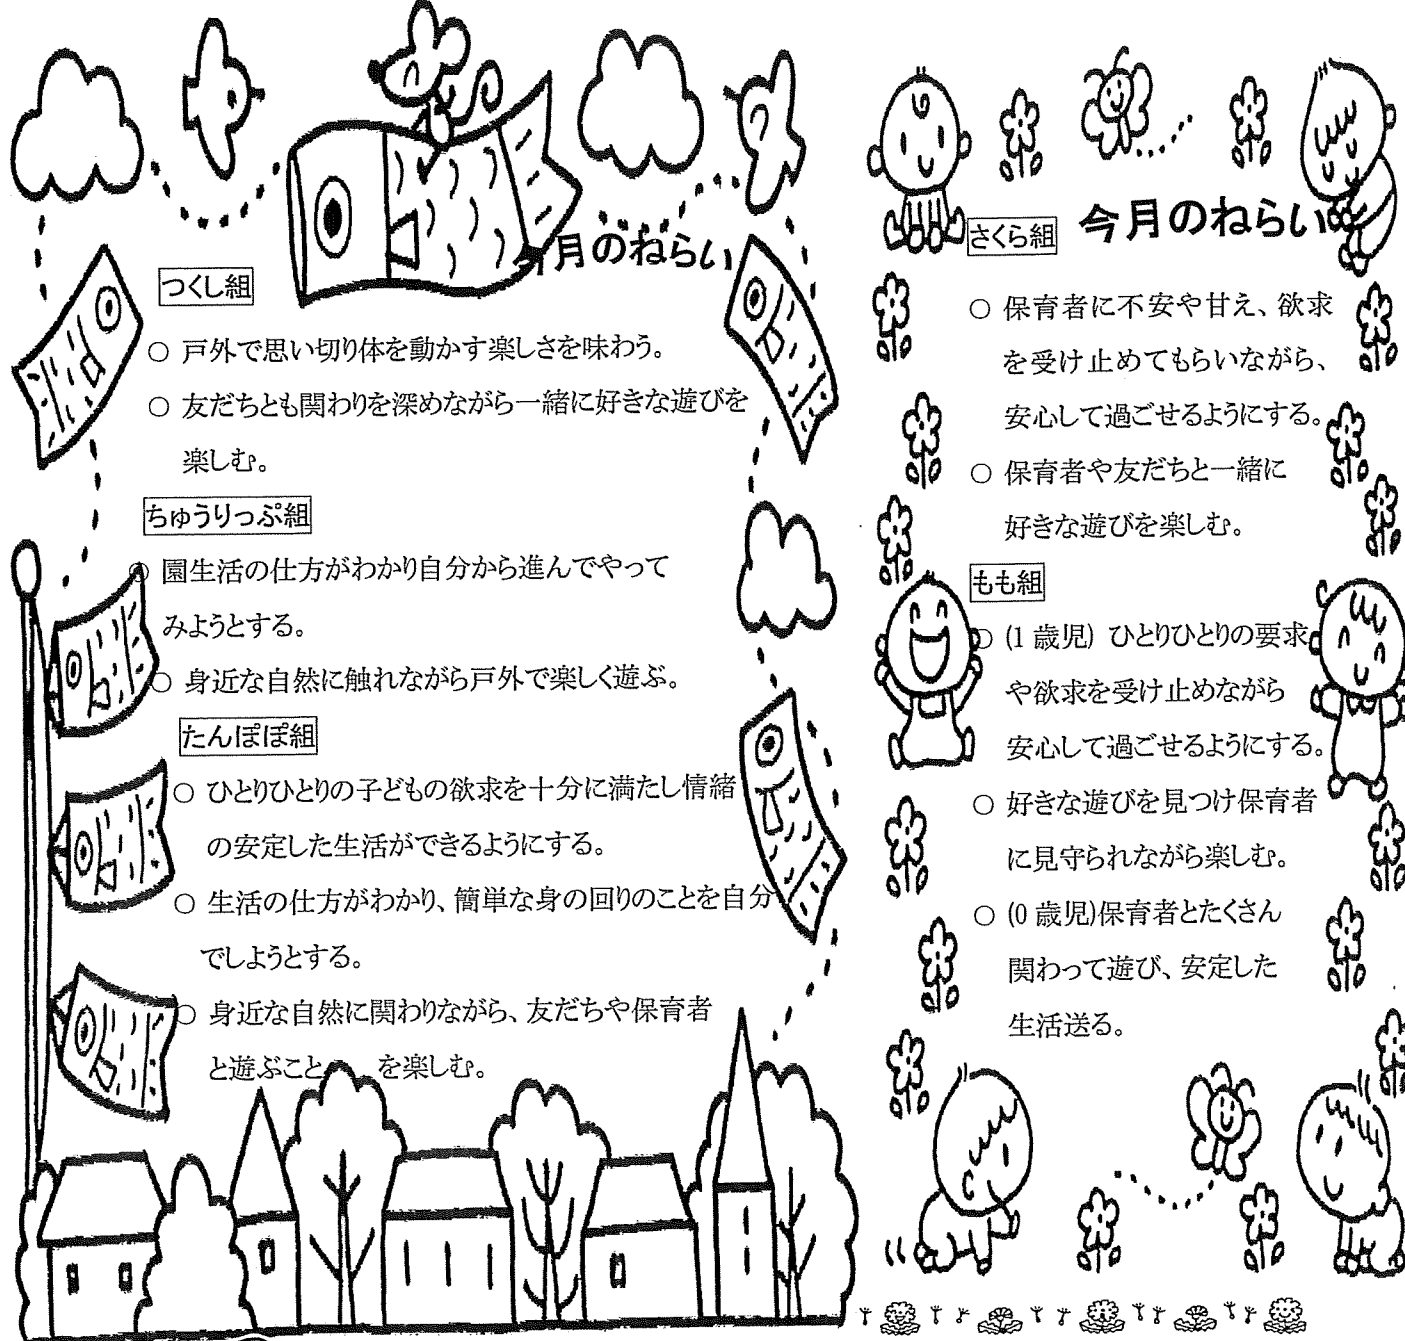 今月のねらい
つくし組
○ 戸外で思い切り体を動かす楽しさを味わう。
○ 友だちとも関わりを深めながら一緒に好きな遊びを
楽しむ。
ちゅうりっぷ組
○ 園生活の仕方がわかり自分から進んでやって
みようとする。
○ 身近な自然に触れながら戸外で楽しく遊ぶ。
たんぽぽ組
○ ひとりひとりの子どもの欲求を十分に満たし情緒
の安定した生活ができるようにする。
○ 生活の仕方がわかり、簡単な身の回りのことを自分
でしようとする。
○ 身近な自然に関わりながら、友だちや保育者
と遊ぶこと を楽しむ。
今月のねらい
さくら組
○ 保育者に不安や甘え、欲求
を受け止めてもらいながら、
安心して過ごせるようにする。
○ 保育者や友だちと一緒に
好きな遊びを楽しむ。
もも組
○ (1 歳児) ひとりひとりの要求
や欲求を受け止めながら
安心して過ごせるようにする。
○ 好きな遊びを見つけ保育者
に見守られながら楽しむ。
○ (0 歳児)保育者とたくさん
関わって遊び、安定した
生活送る。